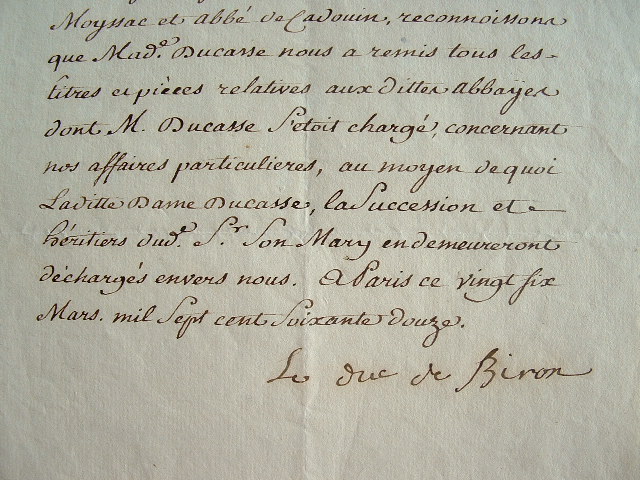 Moyssac et abbé de Cadouin, reconnoissons
que Mad.e Ducasse nous a remis tous les
titres et pièces relatives aux dittes abbaÿes
dont M. Ducasse s'etoit chargé, concernant
nos affaires particulieres, au moyen de quoi
Laditte Dame Ducasse, la Succession et
héritiers dud.e S.r Son Mary en demeureront
déchargés envers nous. A Paris ce vingt six
Mars. mil Sept cent Soixante douze.
Le duc de Biron